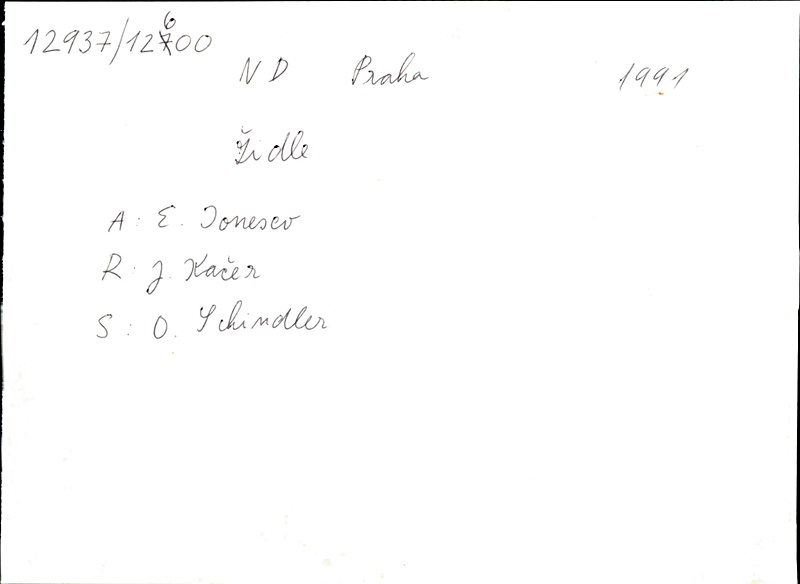 12937/12600
ND Praha 1991
Židle
A: E. Ionesco
R: J. Kačer
S: O. Schindler